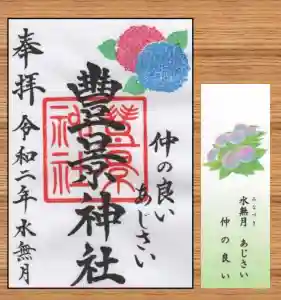 奉拝
令和二年 水無月
豊景神社
豊景神社
仲の良い
あじさい
みなづき
水無月 あじさい
仲の良い